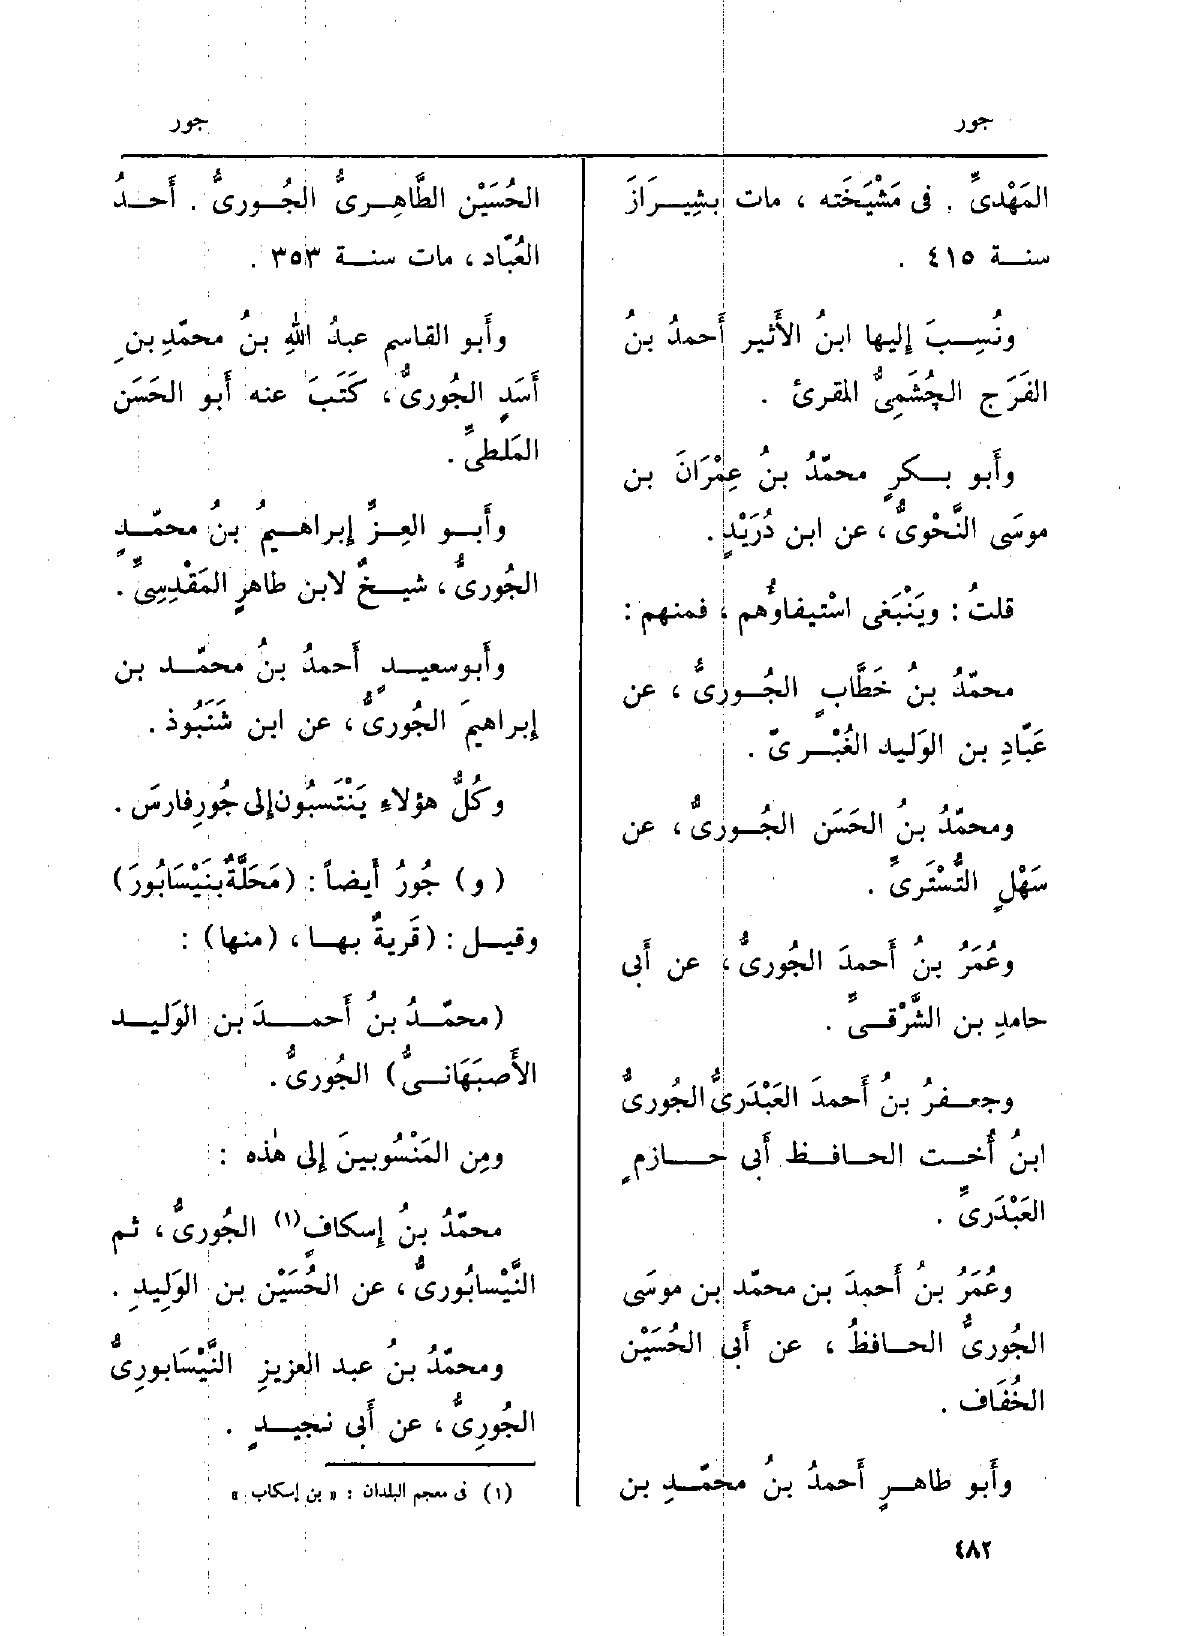 جور
جور
المَهْدىِّ . فى مَشْيَخَته ، مات بشِيرَازَ
سنة ٤١٥ .
ونُسِبَ إليها ابنُ الأَثير أَحمدُ بنُ
الفَرَج الجُشَمِىُّ المقرئ .
وأَبو بكرٍ محمّدُ بنُ عِمْرَانَ بن
موسَى النَّحْوىُّ ، عن ابن دُرَيْدٍ .
قلتُ : ويَنْبَغى اسْتيفاوُهم ، فمنهم :
محمّدُ بنُ خَطَّابٍ الجُورىُّ ، عن
عَبّادِ بن الوَليد الغُبْرىّ .
ومحمّدُ بنُ الحَسَن الجُورىُّ ، عن
سَهْلٍ التُّسْتَرىِّ .
وعُمَرُ بنُ أَحمدَ الجُورىُّ ، عن أَبى
حامدِ بن الشَّرْقىِّ .
وجعفرُ بنُ أَحمدَ العَبْدَرىُّ الجُورىُّ
ابنُ أُخت الحافظ أَبى حازمٍ
العَبْدَرىِّ .
وعُمَرُ بنُ أَحمدَ بن محمّد بن موسَى
الجُورىُّ الحافظُ ، عن أَبى الحُسَيْن
الخُفَاف .
وأَبو طاهرٍ أَحمدُ بنُ محمّدِ بن
الحُسَيْن الطَّاهِرىُّ الجُورىُّ . أَحدُ
العُبّاد ، مات سنة ٣٥٣ .
وأَبو القاسم عبدُ اللهِ بنُ محمّدِ بنِ
أَسَدٍ الجُورىُّ ، كَتَبَ عنه أَبو الحَسَن
المَلطىِّ .
وأَبو العِزِّ إبراهيمُ بنُ محمّدٍ
الجُورىُّ ، شيخٌ لابن طاهرٍ المَقْدِسِىِّ .
وأَبو سعيدٍ أَحمدُ بنُ محمّد بن
إبراهيمَ الجُورىُّ ، عن ابن شَنَبُوذ .
وكلُّ هؤلاءِ يَنْتَسبُون إلى جُورِ فارسَ .
(و) جُورُ أَيضاً : (مَحَلَّةٌ بنَيْسَابُورَ)
وقيل : (قَريةٌ بها ، (منها) :
(محمّدُ بنُ أَحمدَ بن الوَليد
الأَصبَهَانىُّ) الجُورىُّ .
ومِن المَنْسُوبينَ إلى هٰذه :
محمّدُ بنُ إسكافٍ (١) الجُورىُّ ، ثم
النَّيْسابُورىُّ ، عن الحُسَيْن بن الوَلِيدِ .
ومحمّدُ بنُ عبد العزيزِ النَّيْسَابورِىُّ
الجُورِىُّ ، عن أَبى نجيدٍ .
(١) فى معجم البلدان : « بن إسكاب »
٤٨٢